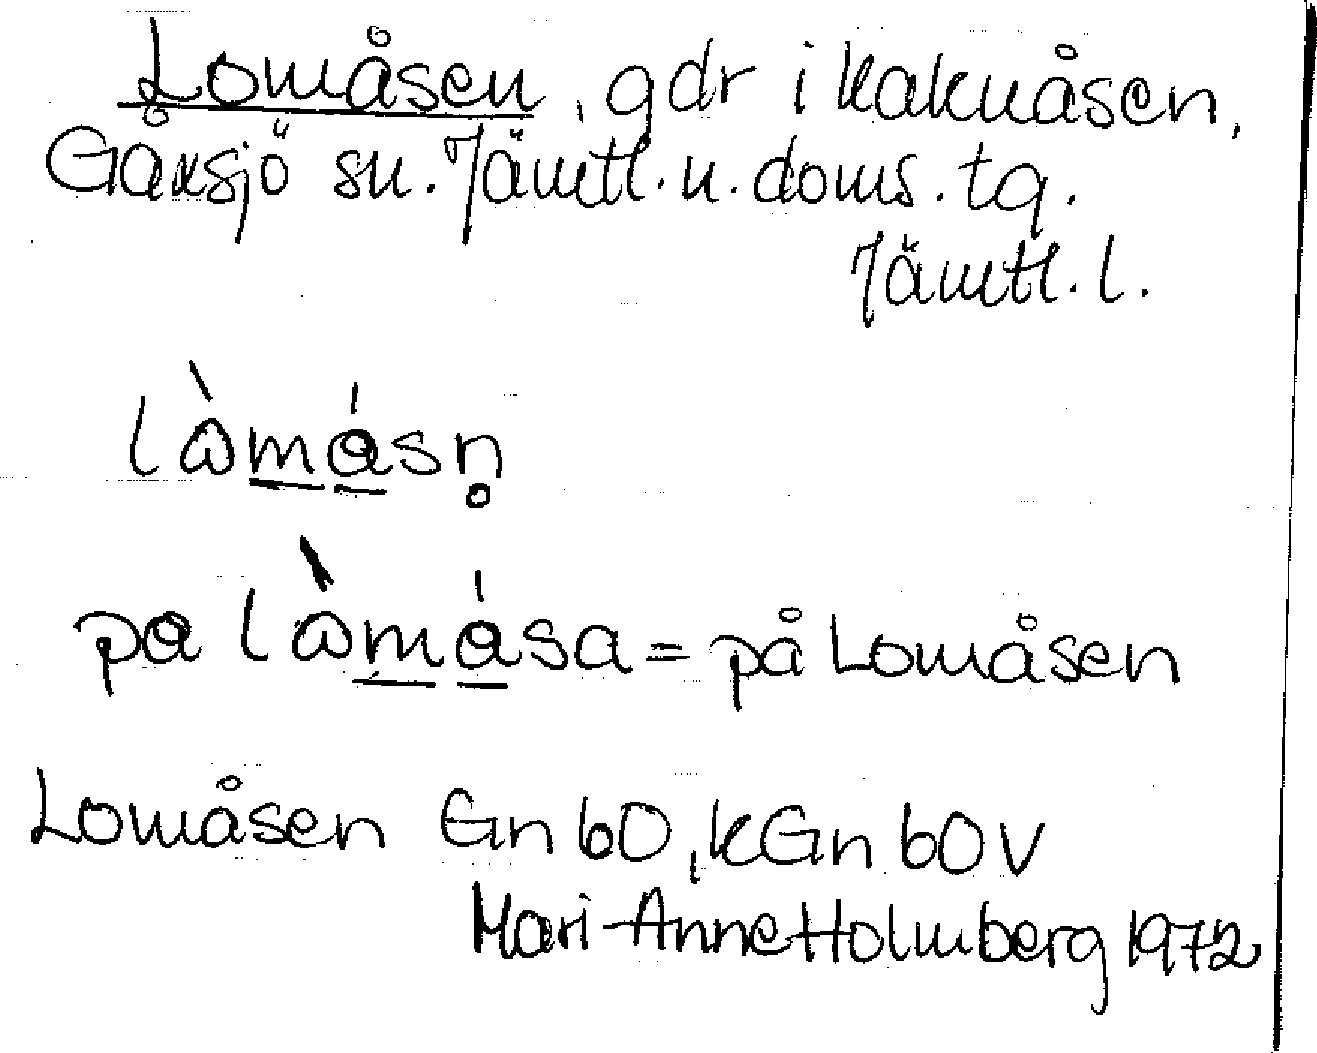 Lomåsen, gdr i Kaknåsen,
Gåxsjö sn. Jämtl. n. doms. tg.
Jämtl. l.
lòmásn̥
pa lòmása = på Lomåsen
Lomåsen Gn 60, kGn 60 v
Mari-Anne Holmberg 1972